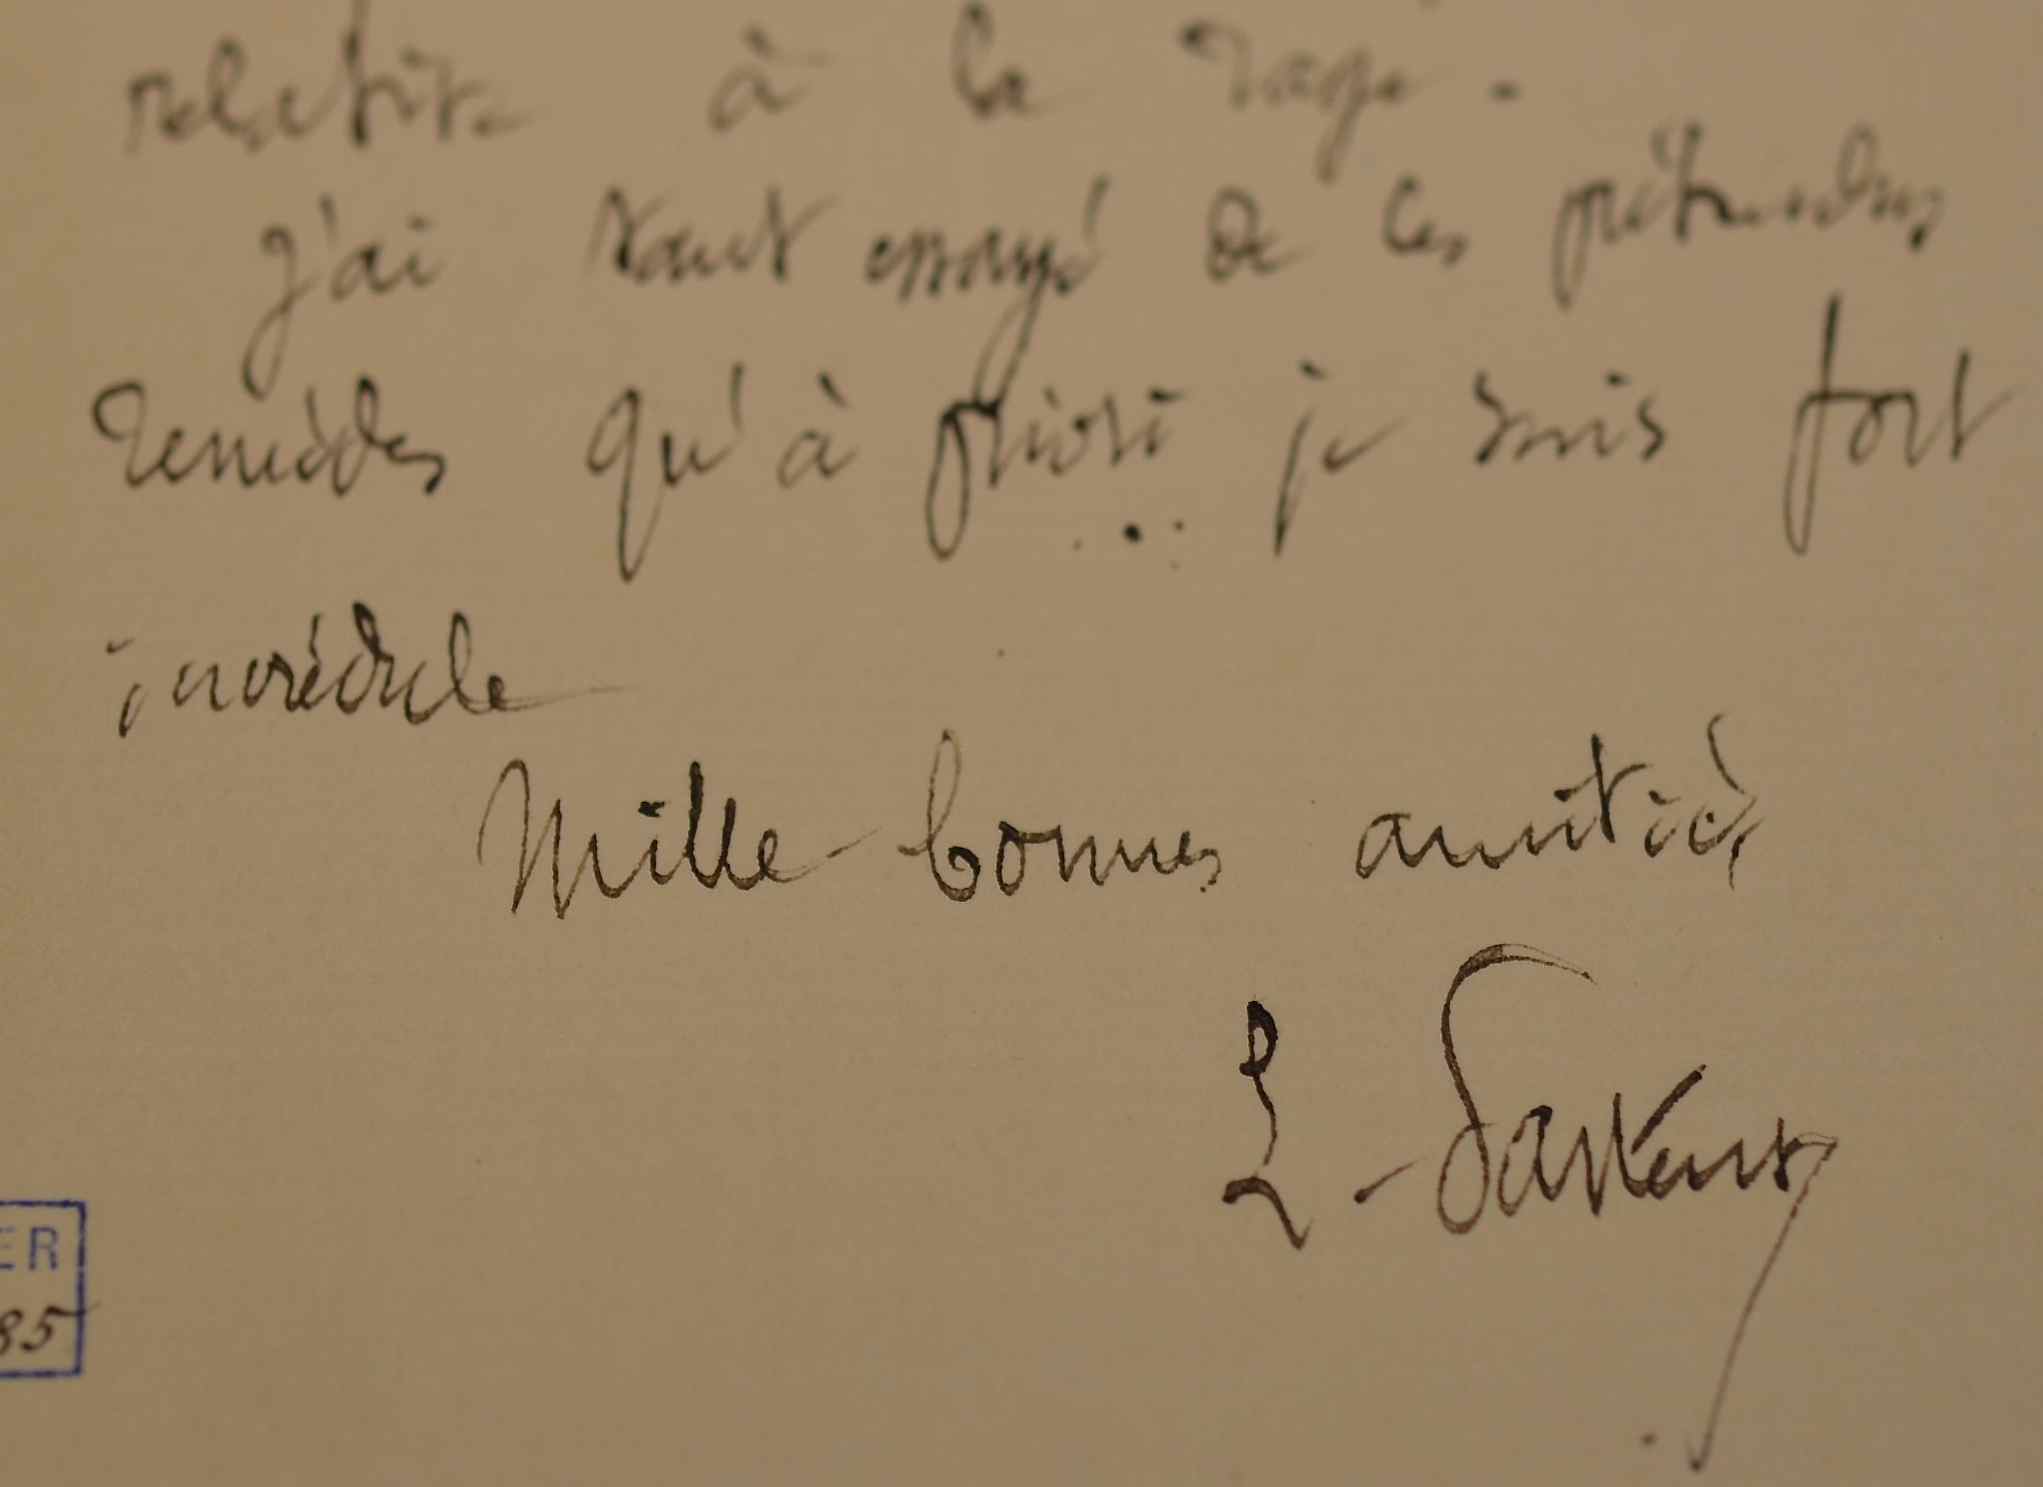 relative à la rage.
J'ai tant essayé de ces prétendus
remèdes qu'à priori je suis fort
incrédule
Mille bonnes amitiés
L. Pasteur
ER
85